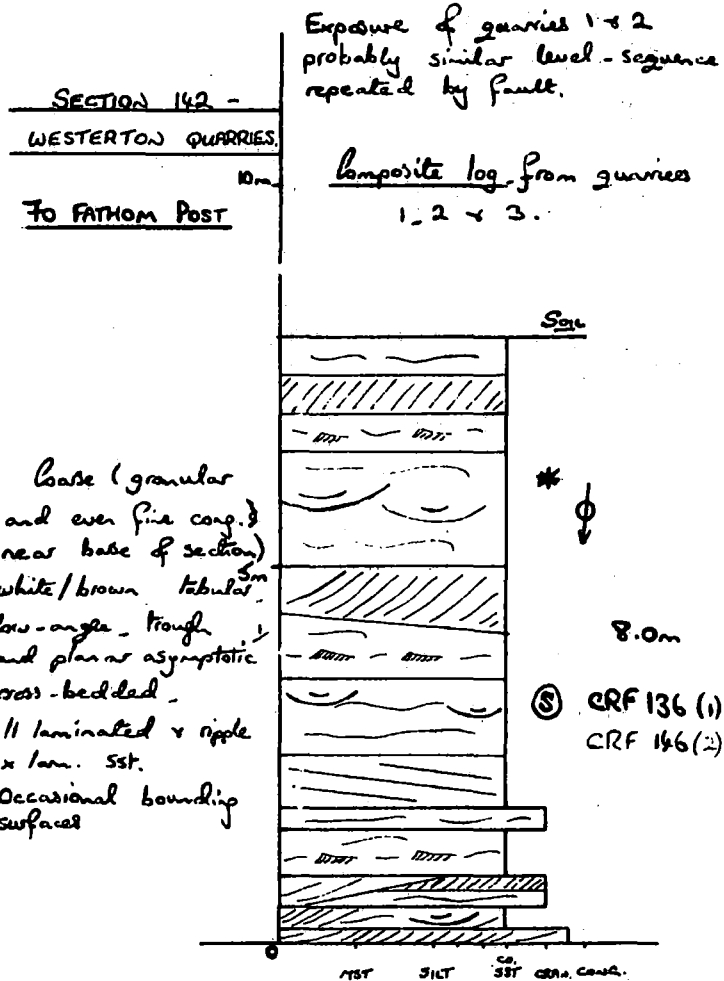 Exposure of quarries 1 & 2
probably similar level - sequence
repeated by fault.
SECTION 142 -
WESTERTON QUARRIES.
10m
Composite log from quarries
1, 2 & 3.
70 FATHOM POST
Soil
Coarse (granular
and even fine cong.
near base of section)
white/brown tabular,
low-angle, trough
and planar asymptotic
cross-bedded,
// laminated & ripple
x lam. sst.
Occasional bounding
surfaces
*
ϕ
5m
8.0m
Ⓢ CRF 136 (1)
CRF 146 (2)
0
MST SILT CO. SST GRAN. CONG.